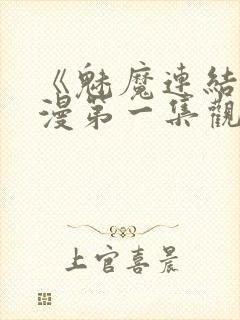 《魅魔連結
漫第一集觀
上官喜晨